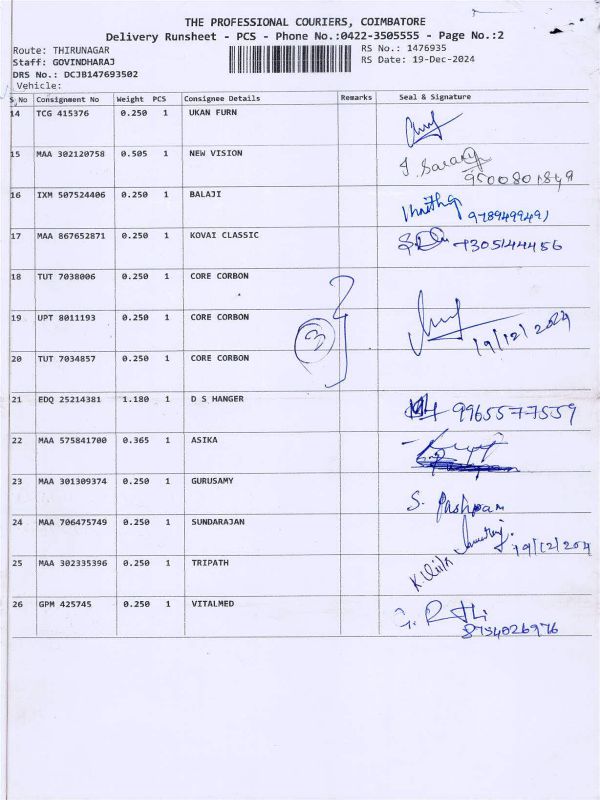 THE PROFESSIONAL COURIERS, COIMBATORE
Delivery Runsheet - PCS - Phone No.:0422-3505555 - Page No.:2
Route: THIRUNAGAR RS No.: 1476935
Staff: GOVINDHARAJ RS Date: 19-Dec-2024
DRS No.: DCJB147693502
Vehicle:
S No Consignment No Weight PCS Consignee Details Remarks Seal & Signature
14 TCG 415376 0.250 1 UKAN FURN
15 MAA 302120758 0.505 1 NEW VISION
9500801849
16 IXM 507524406 0.250 1 BALAJI
17 MAA 867652871 0.250 1 KOVAI CLASSIC
18 TUT 7038006 0.250 1 CORE CORBON
19 UPT 8011193 0.250 1 CORE CORBON 3 19/12/2024
20 TUT 7034857 0.250 1 CORE CORBON
21 EDQ 25214381 1.180 1 D S HANGER 9965577559
22 MAA 575841700 0.365 1 ASIKA
23 MAA 301309374 0.250 1 GURUSAMY S. Pushpam
24 MAA 706475749 0.250 1 SUNDARAJAN
25 MAA 302335396 0.250 1 TRIPATH
26 GPM 425745 0.250 1 VITALMED
8754026976